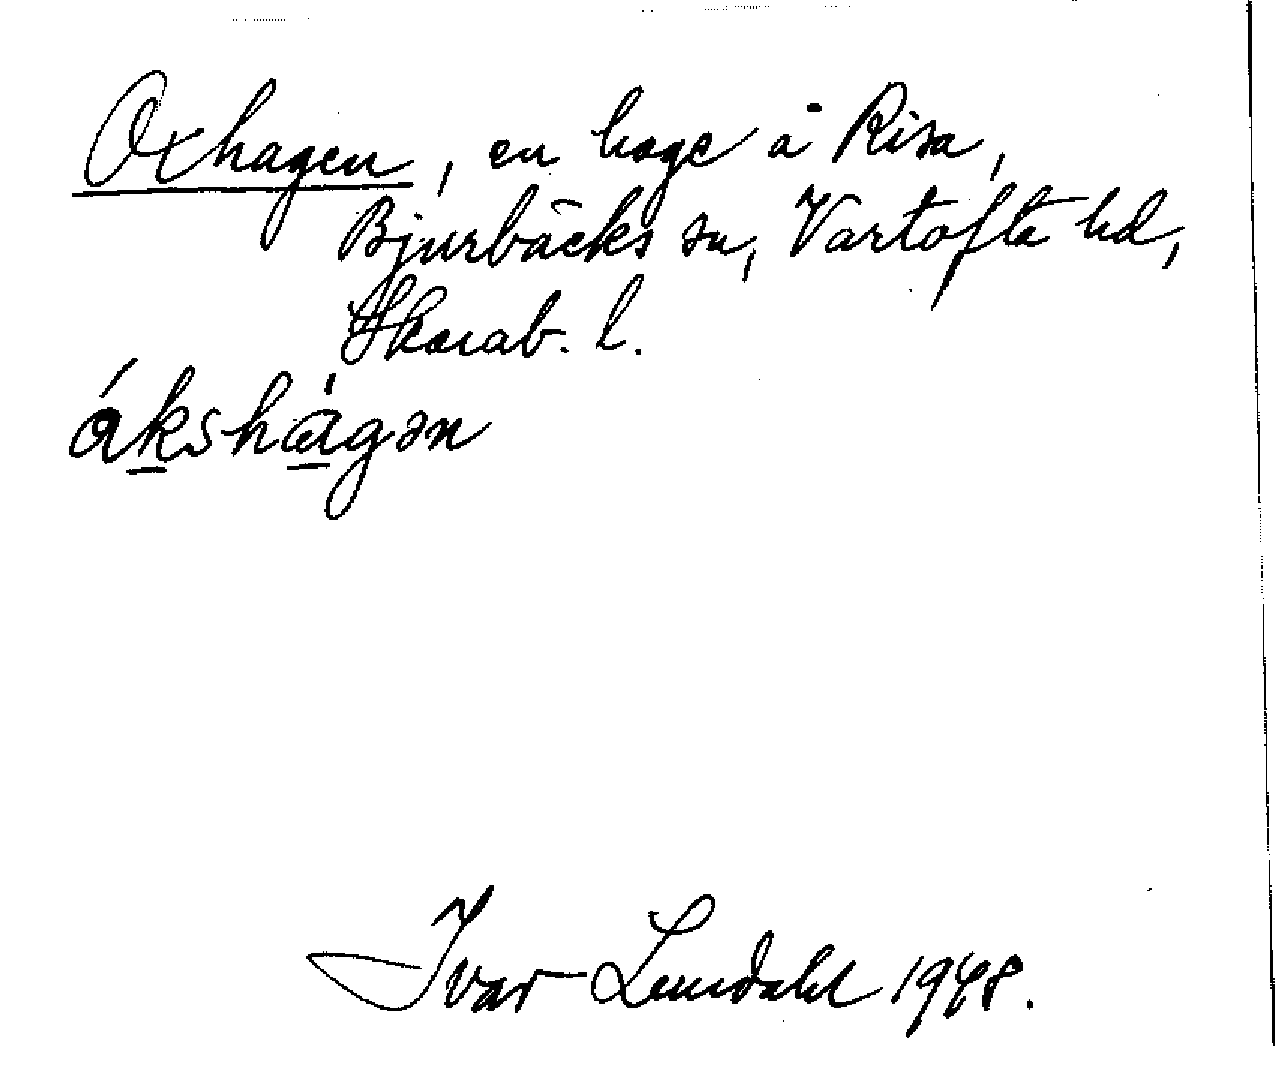 Oxhagen, en hage å Risa,
Bjurbäcks sn, Vartofta hd,
Skarab. l.
ákshágən
Ivar Lundahl 1948.